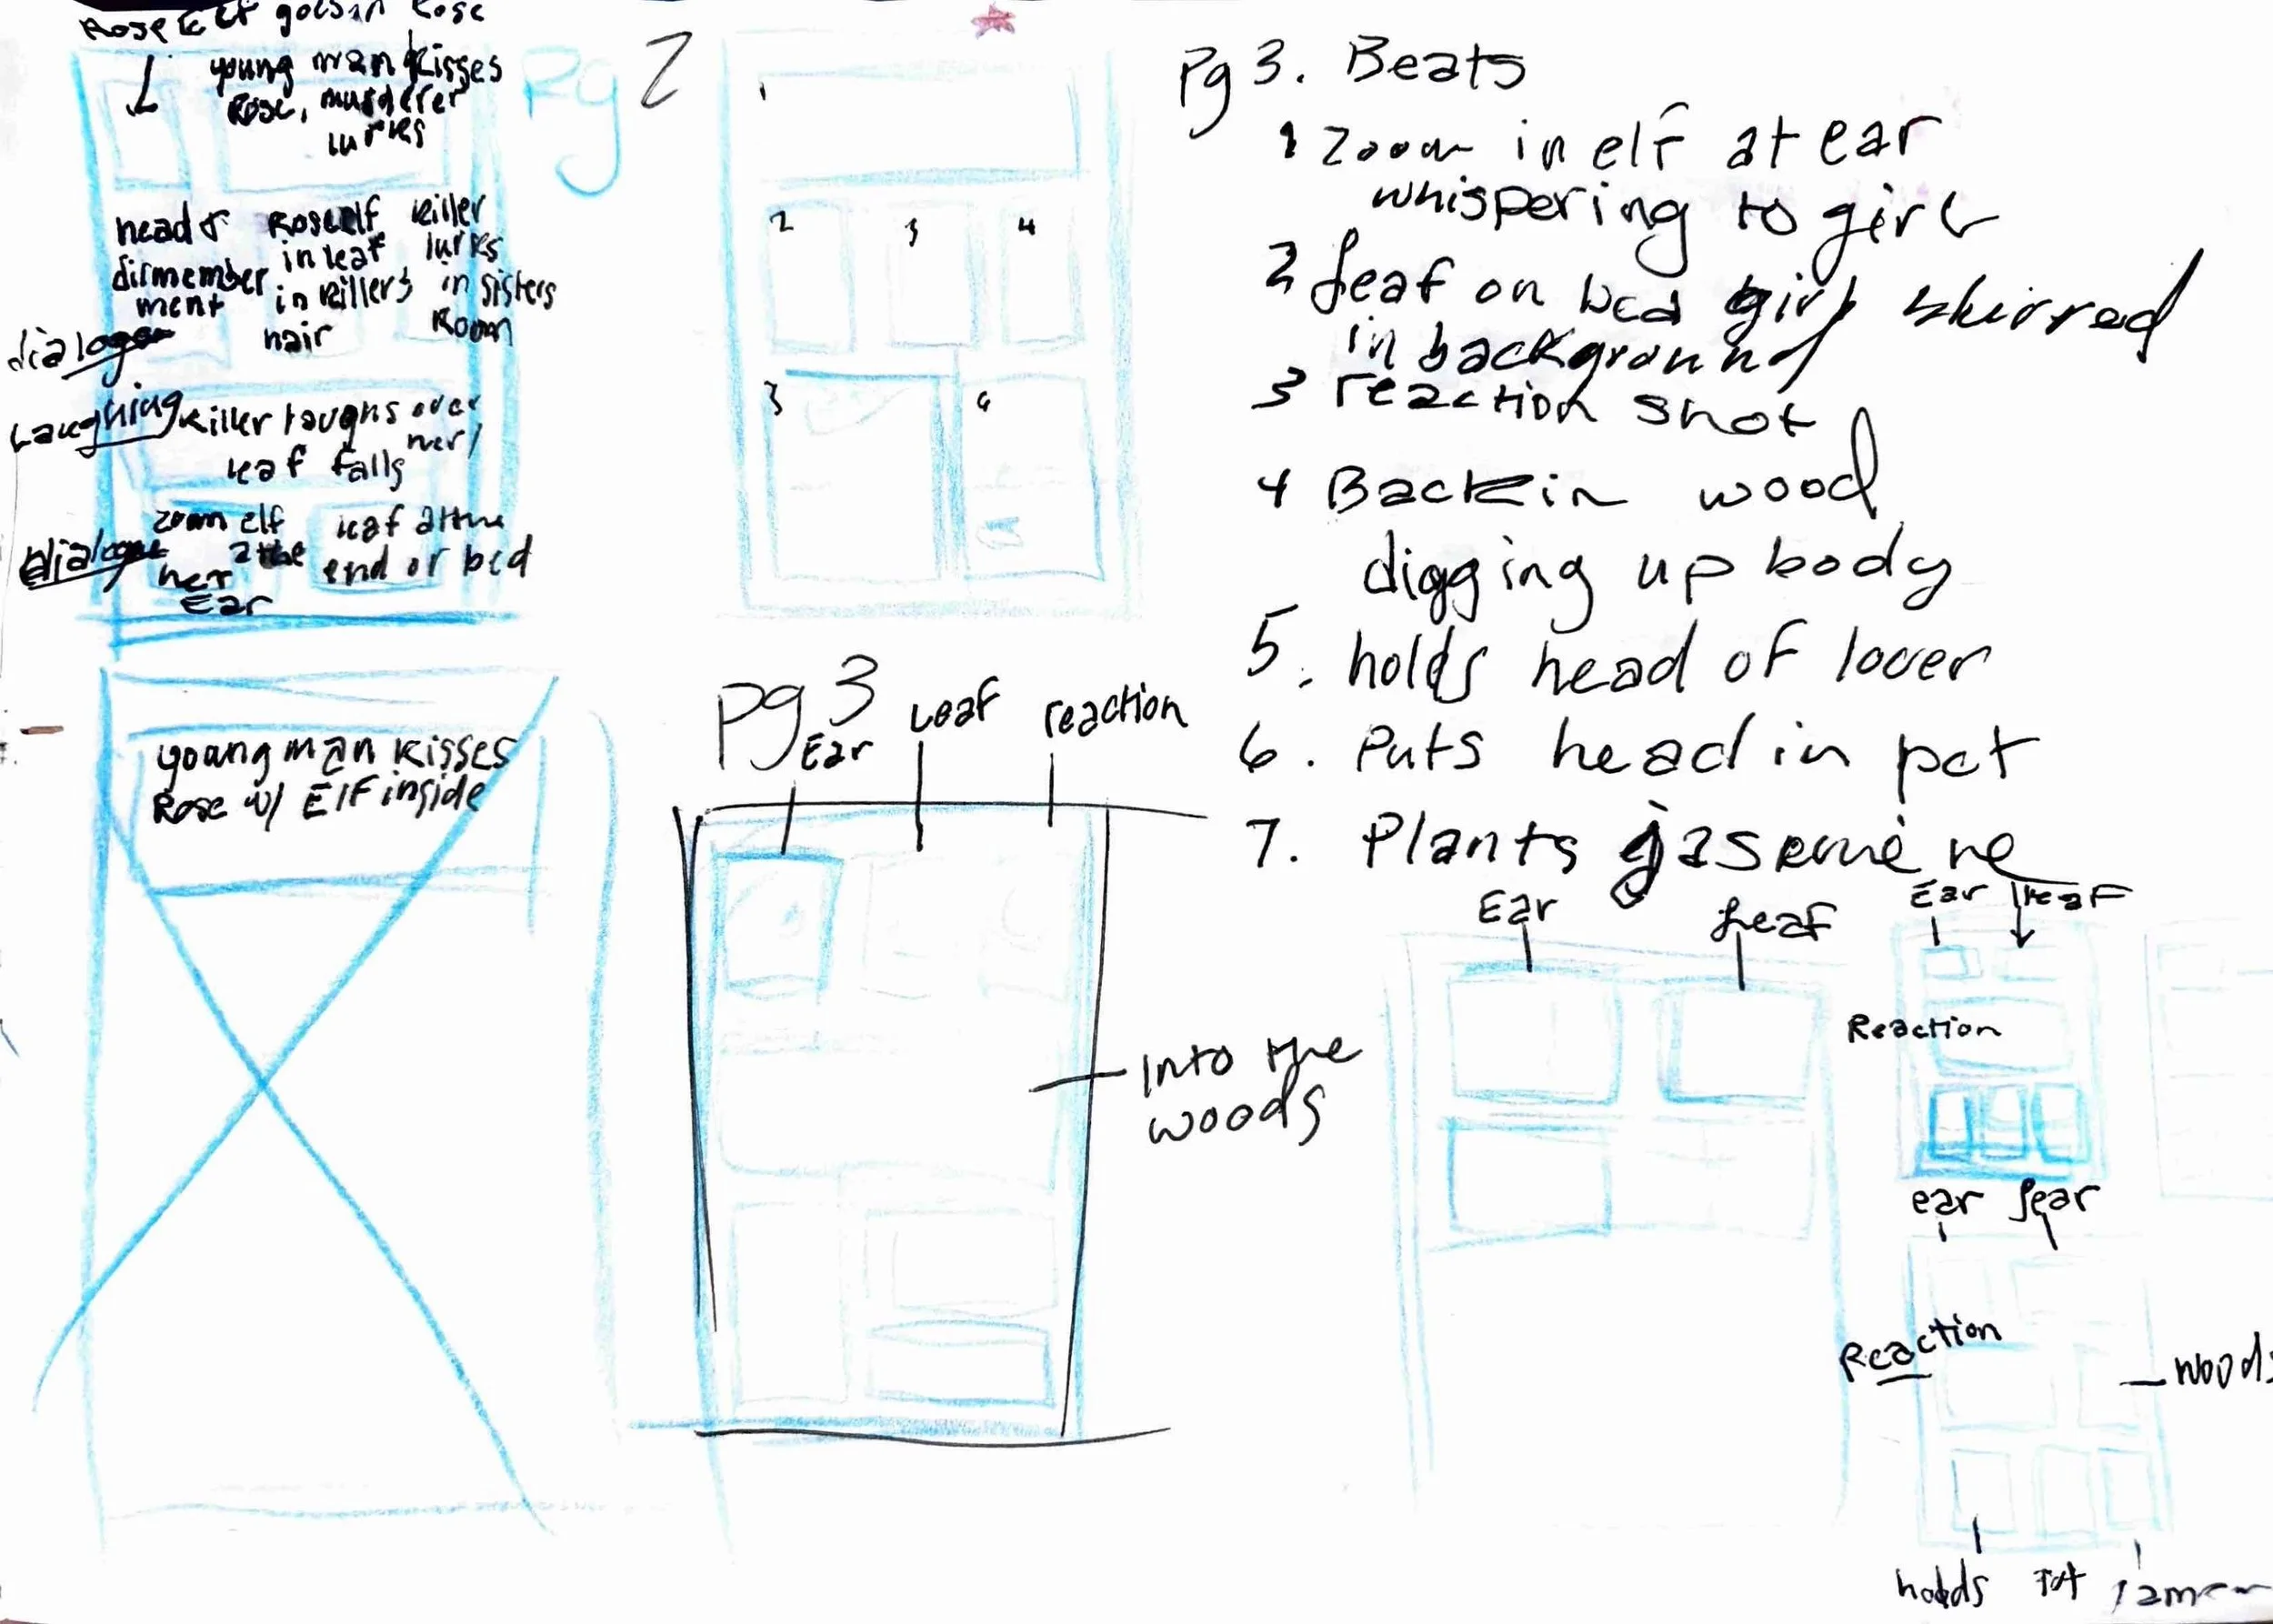 Rose Elf goes in Rose
young man kisses
Rose, murderer
lurks
head & dismember ment
Roseelf in leaf in killers hair
killer lurks in sisters Room
dialogue
Laughing
killer laughs over her/
leaf falls
dialogue
zoom elf 2 the her Ear
leaf at the end of bed
young man kisses
Rose w/ Elf inside
Pg 2
1
2 3 4
5 6
Pg 3
Ear
Leaf
reaction
Into the
woods
Pg 3. Beats
1 Zoom in elf at ear
whispering to girl
2 Leaf on bed girl
in background
3 reaction shot
4 Back in wood
digging up body
5. holds head of lover
6. Puts head in pot
7. Plants
Ear
Leaf
Ear
leaf
Reaction
ear
Reaction
woods
holds